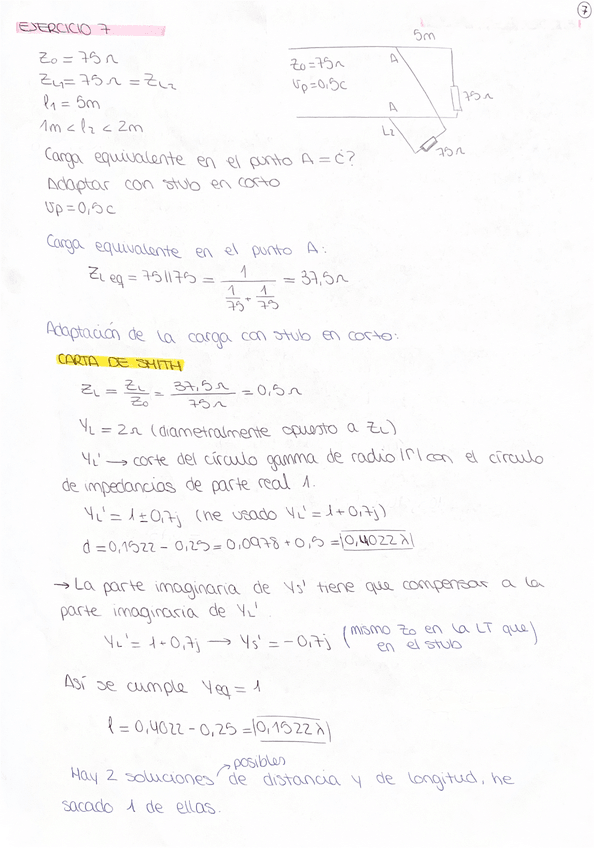 7
EJERCICIO 7
Z₀ = 75Ω
Z_L1 = 75Ω = Z_L2
l₁ = 5m
1m < l₂ < 2m
5m
Z₀=75Ω
Vp=0,5c
A
A
75Ω
L2
75Ω
Carga equivalente en el punto A = ¿?
Adaptar con stub en corto
Vp = 0,5c
Carga equivalente en el punto A:
Z_L eq = 75||75 = 1 / (1/75 + 1/75) = 37,5Ω
Adaptación de la carga con stub en corto:
CARTA DE SMITH
Z_L = Z_L/Z₀ = 37,5Ω/75Ω = 0,5Ω
Y_L = 2Ω (diametralmente opuesto a Z_L)
Y_L' → corte del círculo gamma de radio |Γ| con el círculo
de impedancias de parte real 1.
Y_L' = 1 ± 0,7j (he usado Y_L' = 1 + 0,7j)
d = 0,1522 - 0,25 = 0,0978 + 0,5 = |0,4022 λ|
→ La parte imaginaria de Ys' tiene que compensar a la
parte imaginaria de Y_L'
Y_L' = 1 + 0,7j → Ys' = -0,7j (mismo Z₀ en la LT que
en el stub)
Así se cumple Yeq = 1
l = 0,4022 - 0,25 = |0,1522 λ|
posibles
Hay 2 soluciones de distancia y de longitud, he
sacado 1 de ellas.